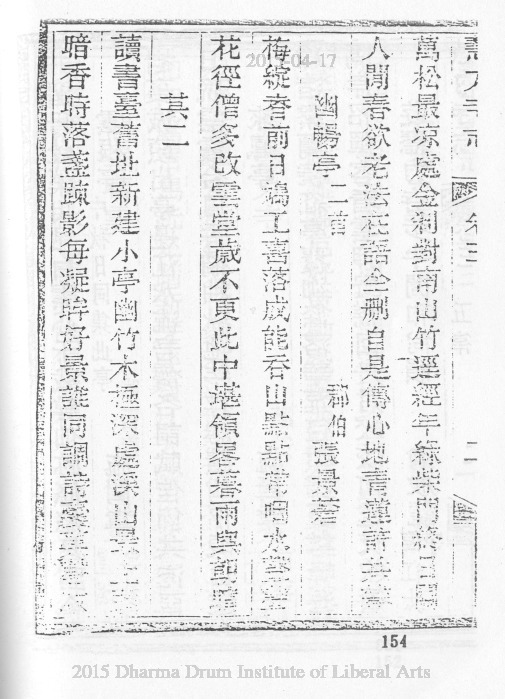 卷三 二
萬松最凉處金剎對南山竹逕經年綠柴門終日關
人閒春欲老法在語全刪自是傳心地青蓮許共
幽暢亭二首 張景
梅綻春前日鳩工喜落成能吞山點點常咽水聲聲
花徑僧多改雲堂歲不更此中堪領畧暮雨與
其二
讀書臺舊址新建小亭幽竹木極深處溪山最上
暗香時落盞疎影每凝眸好景誰同調詩囊
154
2015 Dharma Drum Institute of Liberal Arts